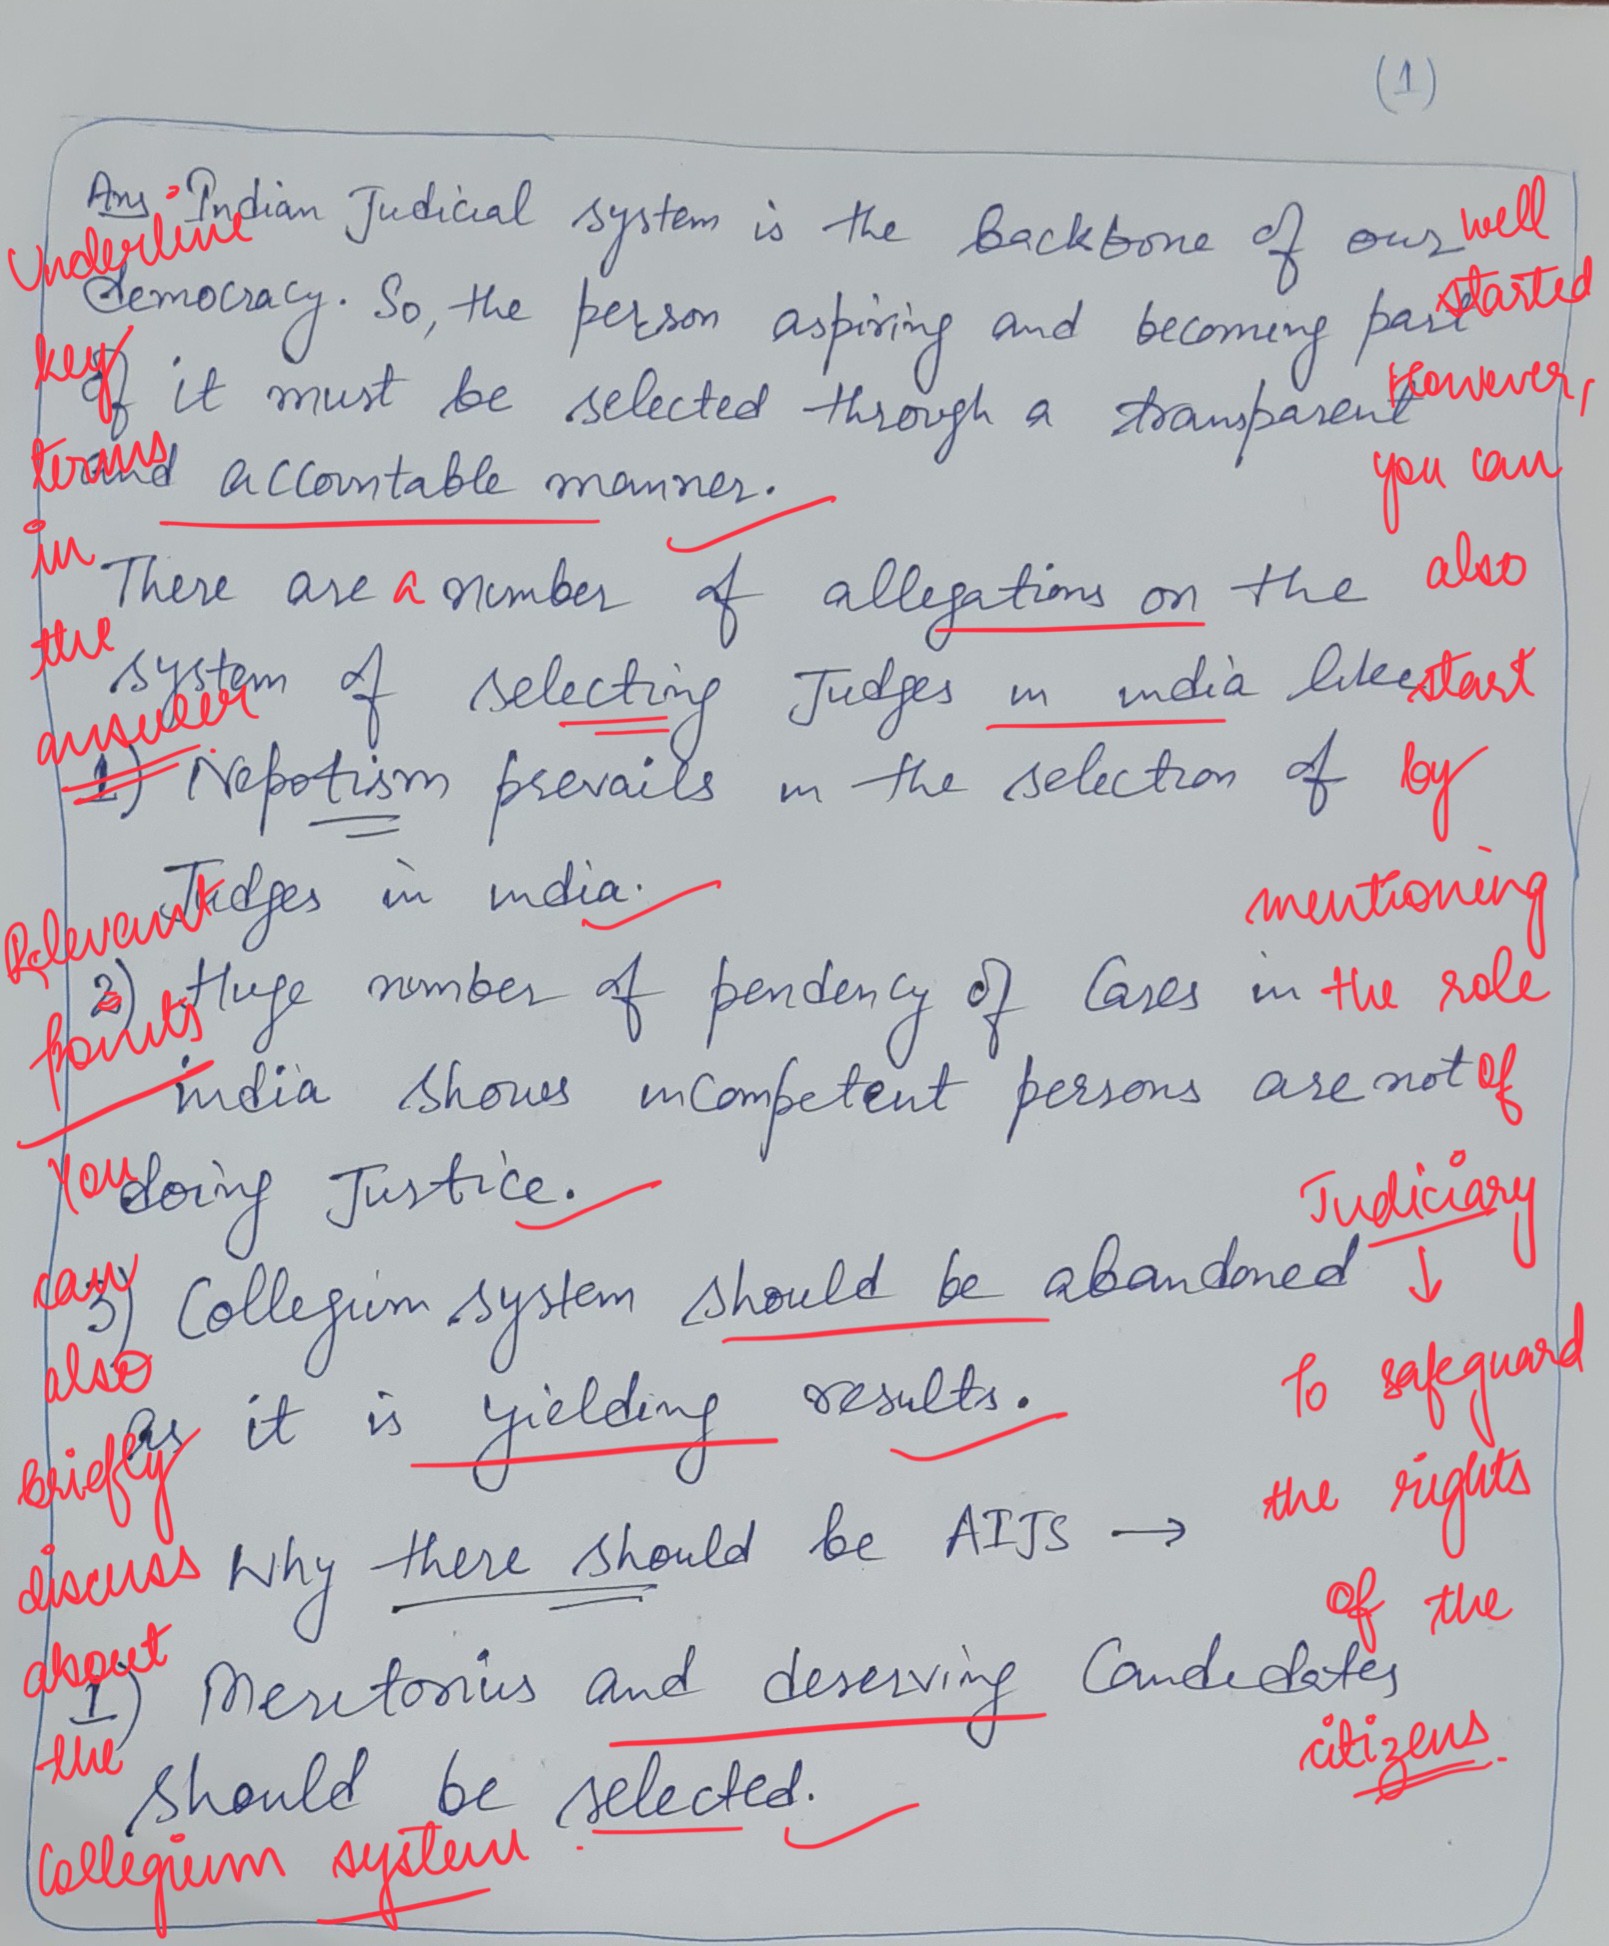 (1)
Ans- Indian Judicial system is the backbone of our
democracy. So, the person aspiring and becoming part
of it must be selected through a transparent
and accountable manner.
There are a number of allegations on the
system of selecting Judges in india like
1) Nepotism prevails in the selection of
Judges in india.
2) Huge number of pendency of Cases in
india shows incompetent persons are not
doing Justice.
3) Collegium system should be abandoned
as it is yielding results.
Why there should be AIJS →
1) Meretorius and deserving Candedates
should be selected.
Underline
key
terms
in
the
answer
Relevant
points
You
can
also
briefly
discuss
about
the
Collegium system
well
started
However,
you can
also
start
by
mentioning
the role
of
Judiciary
↓
To safeguard
the rights
of the
citizens.